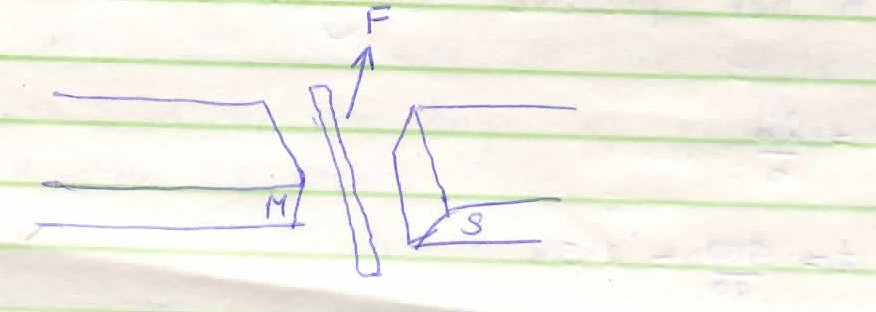 F
M S